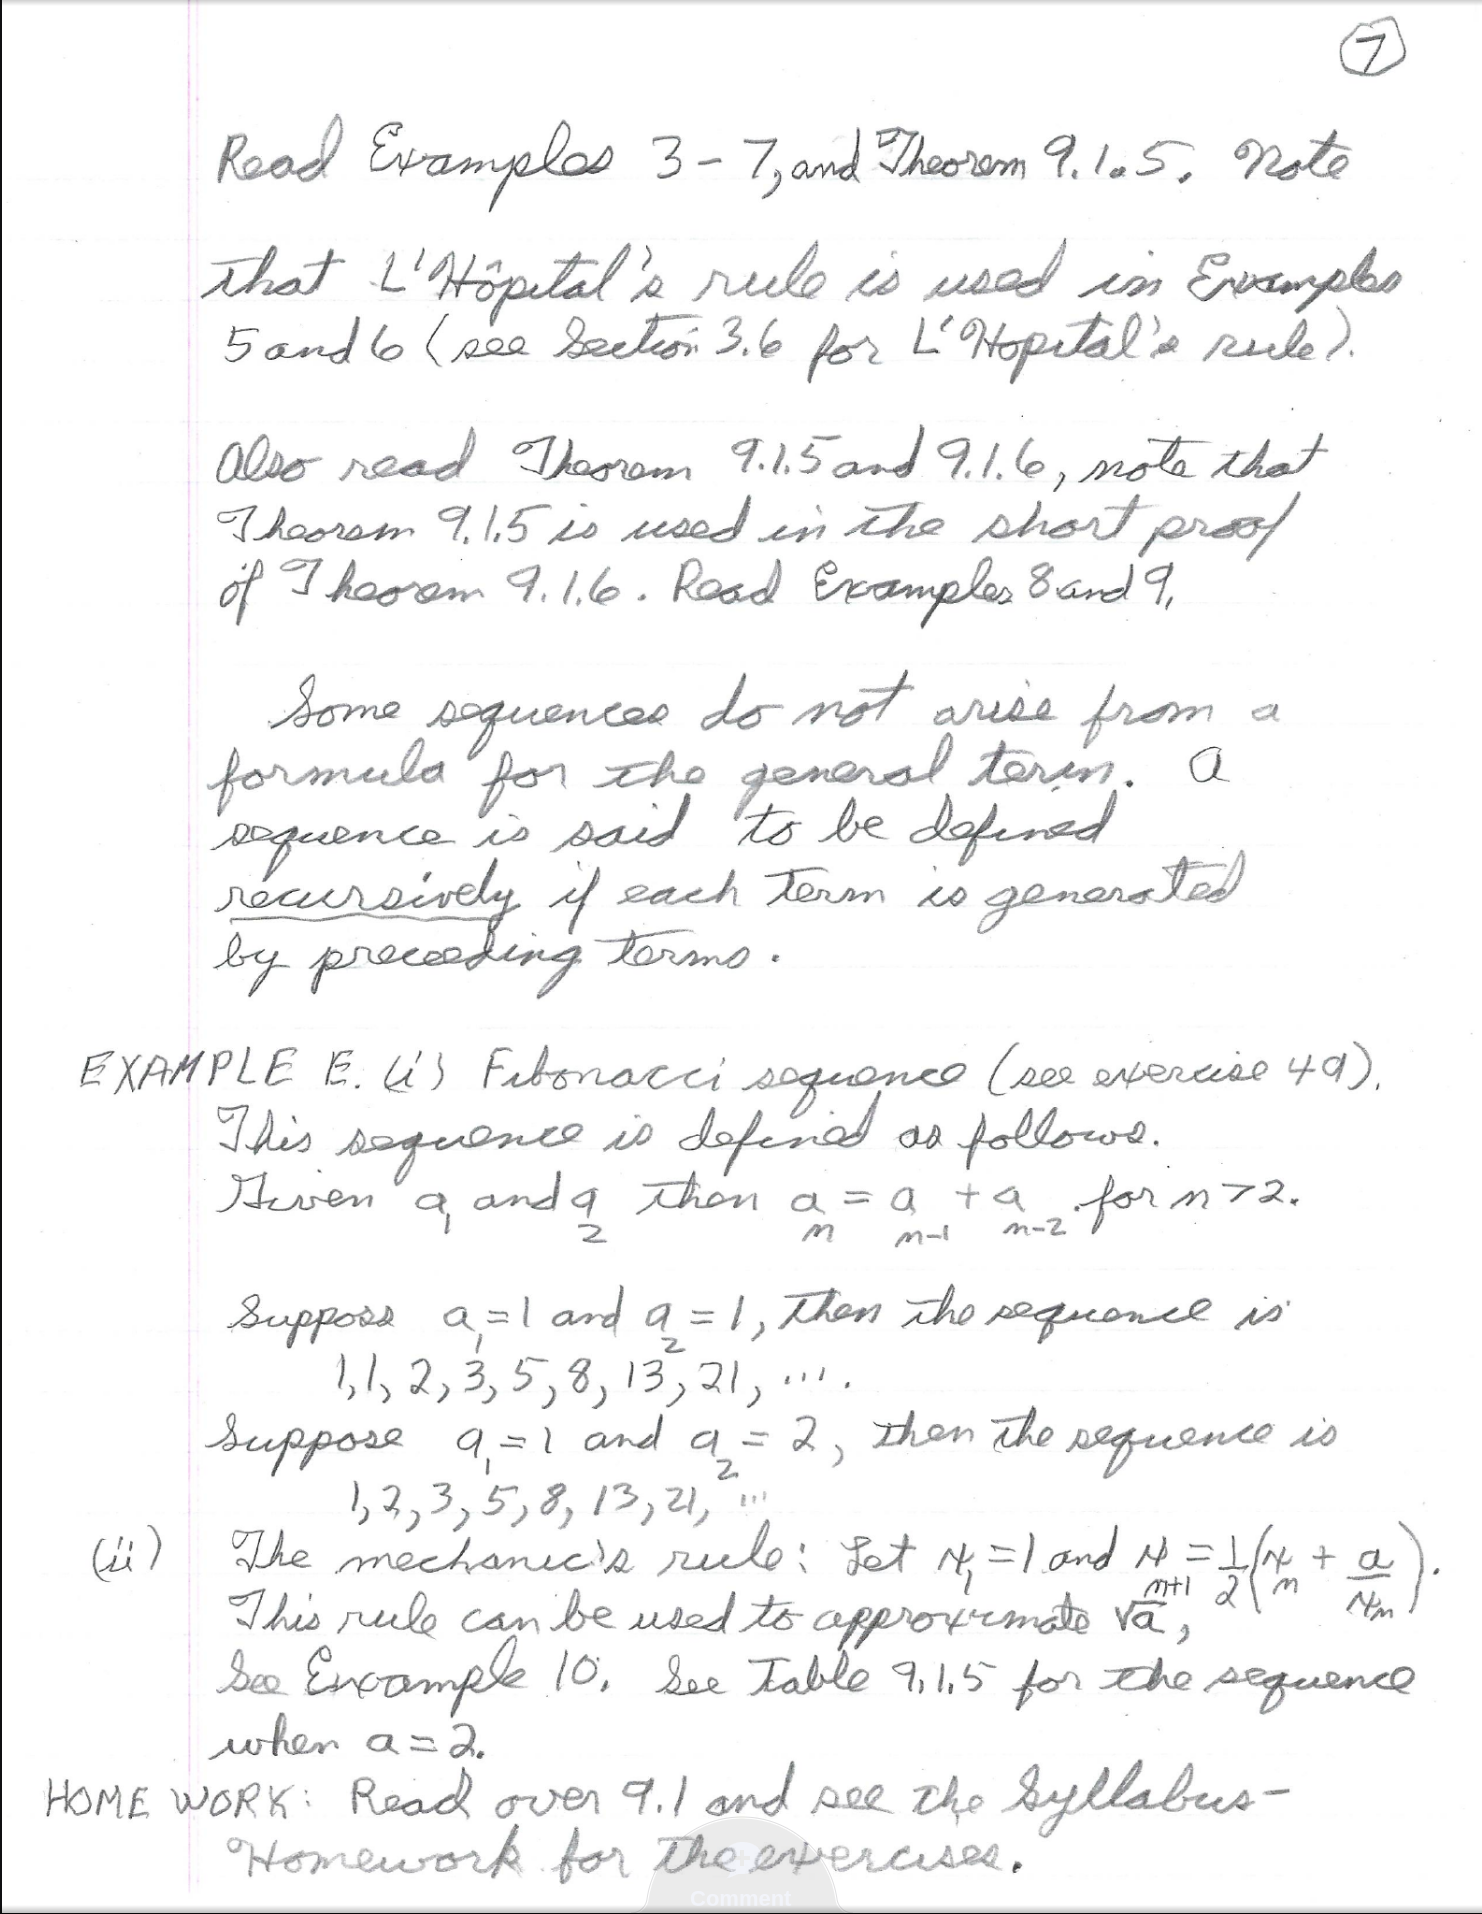 7
Read Examples 3 - 7, and Theorem 9.1.5. Note
that L'Hôpital's rule is used in Examples
5 and 6 (see Section 3.6 for L'Hopital's rule).
Also read Theorem 9.1.5 and 9.1.6, note that
Theorem 9.1.5 is used in the short proof
of Theorem 9.1.6. Read Examples 8 and 9.
Some sequences do not arise from a
formula for the general term. A
sequence is said to be defined
recursively if each term is generated
by preceeding terms.
EXAMPLE E. (i) Fibonacci sequence (see exercise 49).
This sequence is defined as follows.
Given a₁ and a₂ then aₙ = aₙ₋₁ + aₙ₋₂ for n > 2.
Suppose a₁ = 1 and a₂ = 1, then the sequence is
1, 1, 2, 3, 5, 8, 13, 21, ....
Suppose a₁ = 1 and a₂ = 2, then the sequence is
1, 2, 3, 5, 8, 13, 21, ...
(ii) The mechanic's rule: Let x₁ = 1 and xₙ₊₁ = 1/2 (xₙ + a/xₙ).
This rule can be used to approximate √a,
See Example 10. See Table 9.1.5 for the sequence
when a = 2.
HOME WORK: Read over 9.1 and see the Syllabus-
Homework for the exercises.
Comment